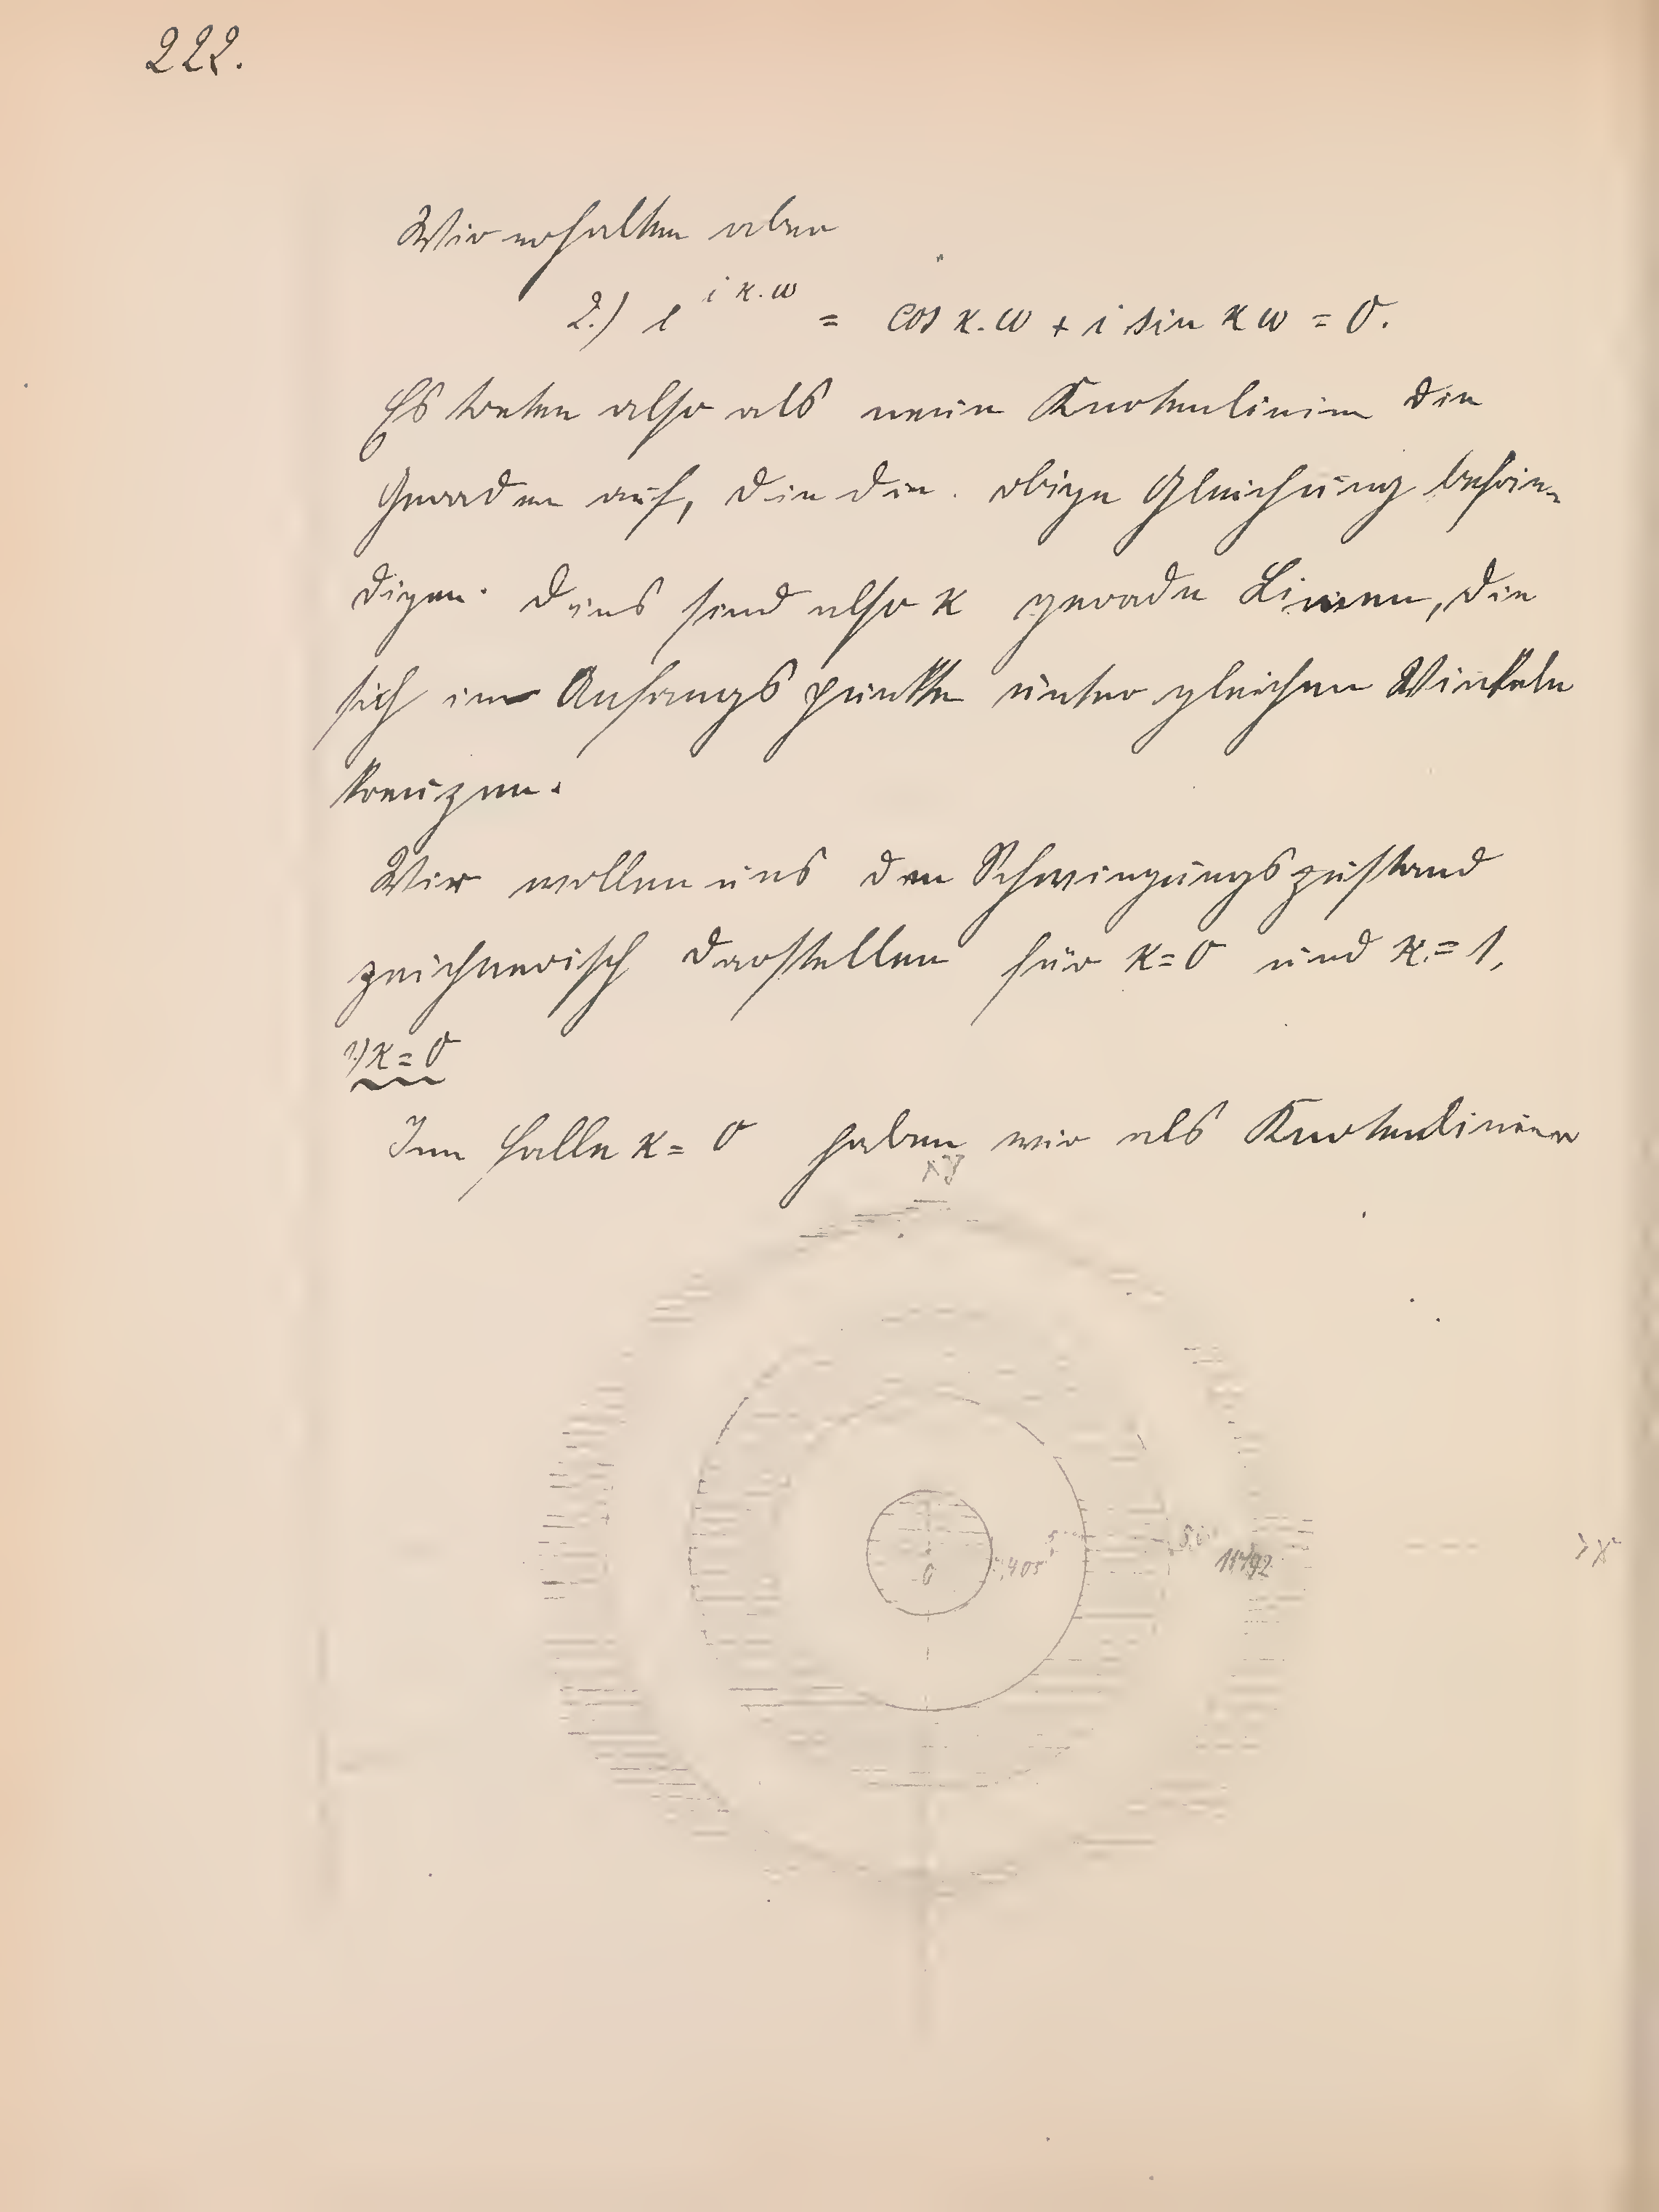 222.
Wir erhalten aber
2.) e^{iκ.ω} = cos κ.ω + i sin κω = 0.
Es treten also als neue Knotenlinien die
Geraden auf, die die obige Gleichung befrie-
digen. Dies sind also κ gerade Linien, die
sich im Anfangspunkte unter gleichen Winkeln
kreuzen.
Wir wollen uns den Schwingungszustand
zeichnerisch darstellen für κ=0 und κ=1.
1) κ=0
Im Falle κ=0 haben wir als Knotenlinien
y
0
x